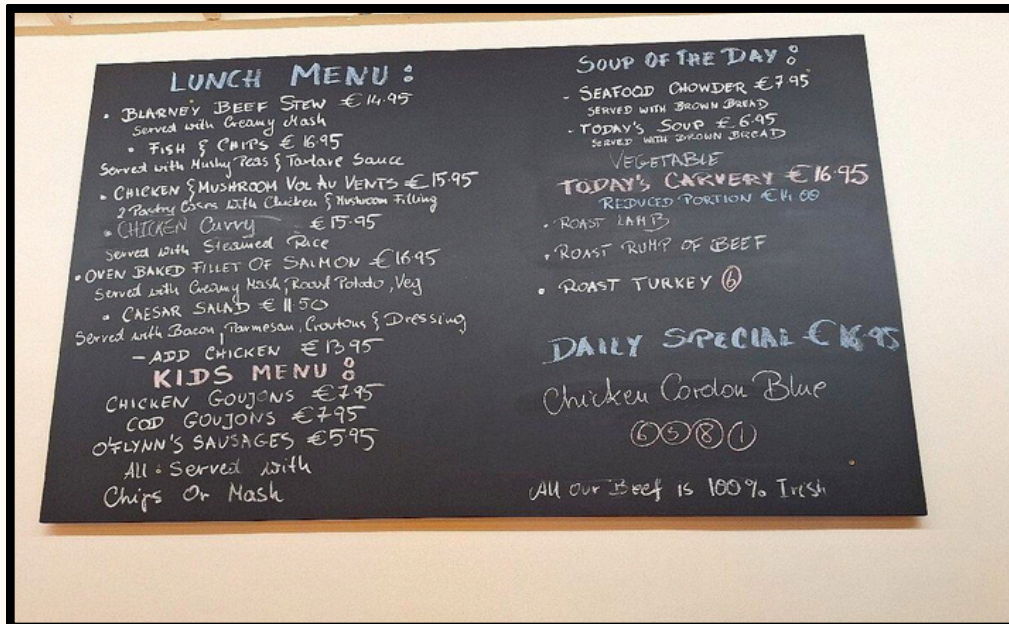 LUNCH MENU :
• BLARNEY BEEF STEW €14.95
Served with Creamy Mash
• FISH & CHIPS € 16.95
Served with Mushy Peas & Tartare Sauce
• CHICKEN & MUSHROOM VOL AU VENTS €15.95
2 Pastry Cases with Chicken & Mushroom Filling
• CHICKEN Curry €15.95
Served with Steamed Rice
• OVEN BAKED FILLET OF SALMON €16.95
Served with Creamy Mash, Roast Potato, Veg
• CAESAR SALAD € 11.50
Served with Bacon, Parmesan, Croutons & Dressing
- ADD CHICKEN €13.95
KIDS MENU :
CHICKEN GOUJONS €7.95
COD GOUJONS €7.95
O'FLYNN'S SAUSAGES €5.95
All : Served with
Chips Or Mash
SOUP OF THE DAY :
- SEAFOOD CHOWDER €7.95
SERVED WITH BROWN BREAD
- TODAY'S SOUP €6.95
SERVED WITH BROWN BREAD
VEGETABLE
TODAY'S CARVERY €16.95
REDUCED PORTION €14.00
• ROAST LAMB
• ROAST RUMP OF BEEF
• ROAST TURKEY 6
DAILY SPECIAL €16.95
Chicken Cordon Blue
6 5 8 1
All Our Beef is 100% Irish